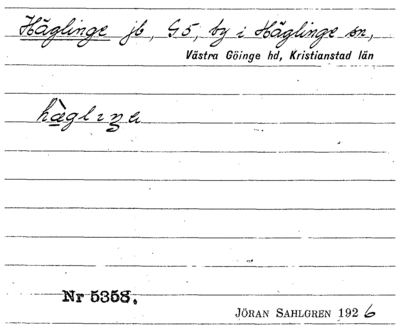 Häglinge jb, G5, by i Häglinge sn,
Västra Göinge hd, Kristianstad län
Nr 5358.
JÖRAN SAHLGREN 1926